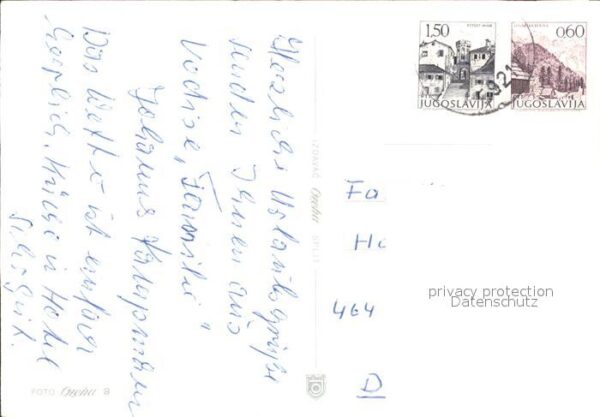 Herzliche Urlaubsgrüße
senden Ihnen aus
Vodice, Familie
Johannes
Das Wetter ist einfach
herrlich. Küche in Hotel
1,50
JUGOSLAVIJA
0,60
JUGOSLAVIJA
921
Fa
Hc
464
D
privacy protection
Datenschutz
IZDAVAČ SPLIT
FOTO